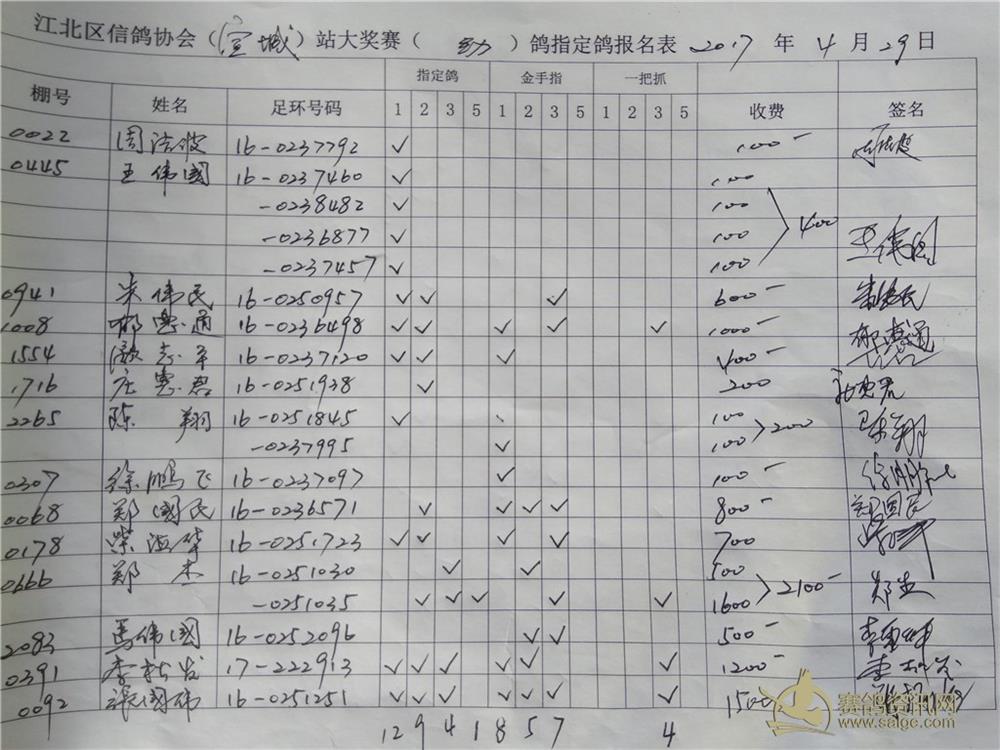 江北区信鸽协会（宣城）站大奖赛（ 幼 ）鸽指定鸽报名表 2017 年 4 月 29 日
指定鸽 金手指 一把抓
棚号 姓名 足环号码 1 2 3 5 1 2 3 5 1 2 3 5 收费 签名
0022 周洁波 16-0237792 ✓ 100-
0445 王伟国 16-0237460 ✓ 100
-0238482 ✓ 100
-0236877 ✓ 100 400 王伟国
-0237457 ✓ 100
0941 朱伟民 16-0250957 ✓ ✓ ✓ 600- 朱伟民
1008 郁惠通 16-0236498 ✓ ✓ ✓ ✓ ✓ 1000- 郁惠通
1554 志军 16-0237120 ✓ ✓ ✓ 400-
1716 庄惠君 16-0251938 ✓ 200
2265 陈翔 16-0251845 ✓ 100 陈翔
-0237995 ✓ 100- 200
0307 徐鹏飞 16-0237097 ✓ 100-
0068 郑国民 16-0236571 ✓ ✓ ✓ ✓ 800- 郑国民
0178 柴 16-0251723 ✓ ✓ ✓ ✓ 700
0666 郑杰 16-0251030 ✓ ✓ 500
-0251035 ✓ ✓ ✓ ✓ ✓ 1600 2100- 郑杰
2083 马伟国 16-0252096 ✓ ✓ 500-
0391 李松岩 17-222913 ✓ ✓ ✓ ✓ ✓ ✓ 1200-
0092 张国伟 16-0251251 ✓ ✓ ✓ ✓ ✓ ✓ ✓ 1500
12 9 4 1 8 5 7 4
赛鸽资讯网
www.saige.com